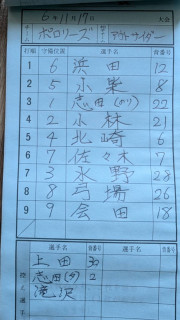 6年11月17日 大会
チーム名 ポロリーズ 対戦チーム アウトサイダー
打順 守備位置 選手名 背番号
1 6 浜田 12
2 5 小柴 8
3 1 志田(カツ) 22
4 2 小林 21
5 4 北崎 6
6 7 佐々木 7
7 3 水野 28
8 8 弓場 26
9 9 会田 18
選手名 背番号 選手名 背番号
控え選手
上田 30
志田(タ) 2
滝沢